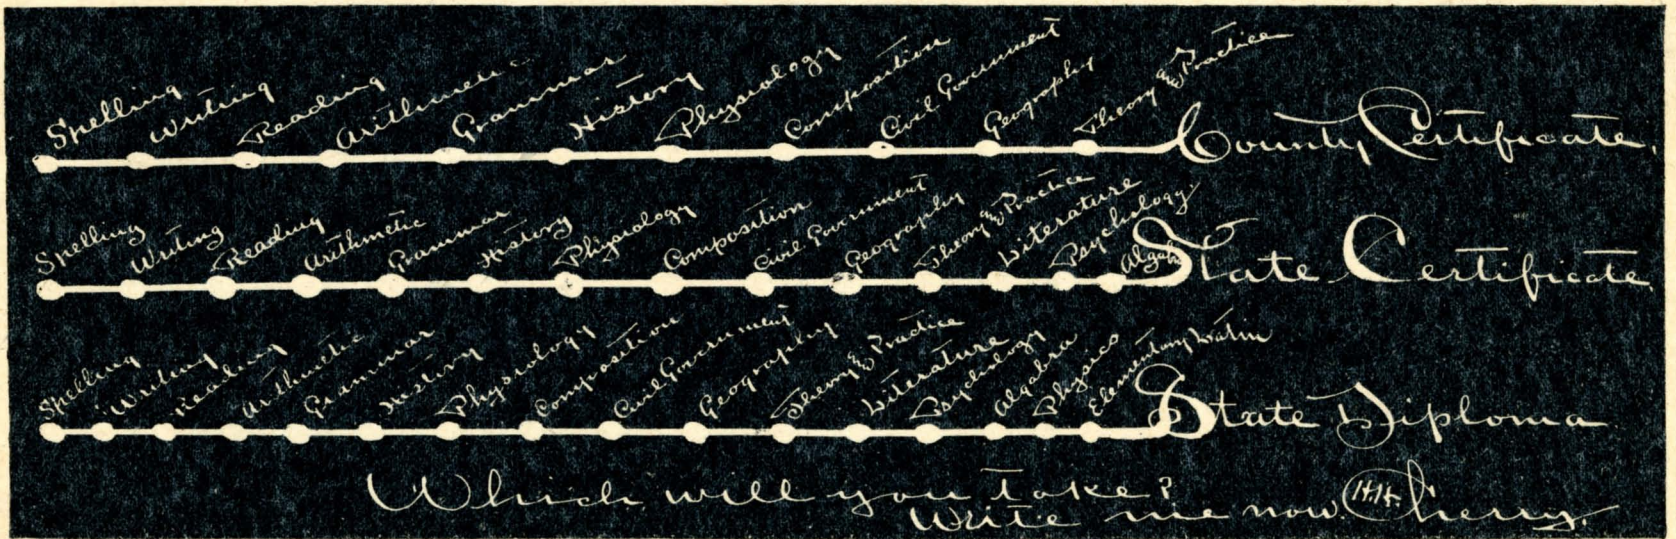 Spelling Writing Reading Arithmetic Grammar History Physiology Composition Civil Government Geography Theory and Practice County Certificate.
Spelling Writing Reading Arithmetic Grammar History Physiology Composition Civil Government Geography Theory and Practice Literature Psychology Algebra State Certificate
Spelling Writing Reading Arithmetic Grammar History Physiology Composition Civil Government Geography Theory & Practice Literature Psychology Algebra Physics Elementary Latin State Diploma
Which will you take?
Write me now. H.H. Cherry.